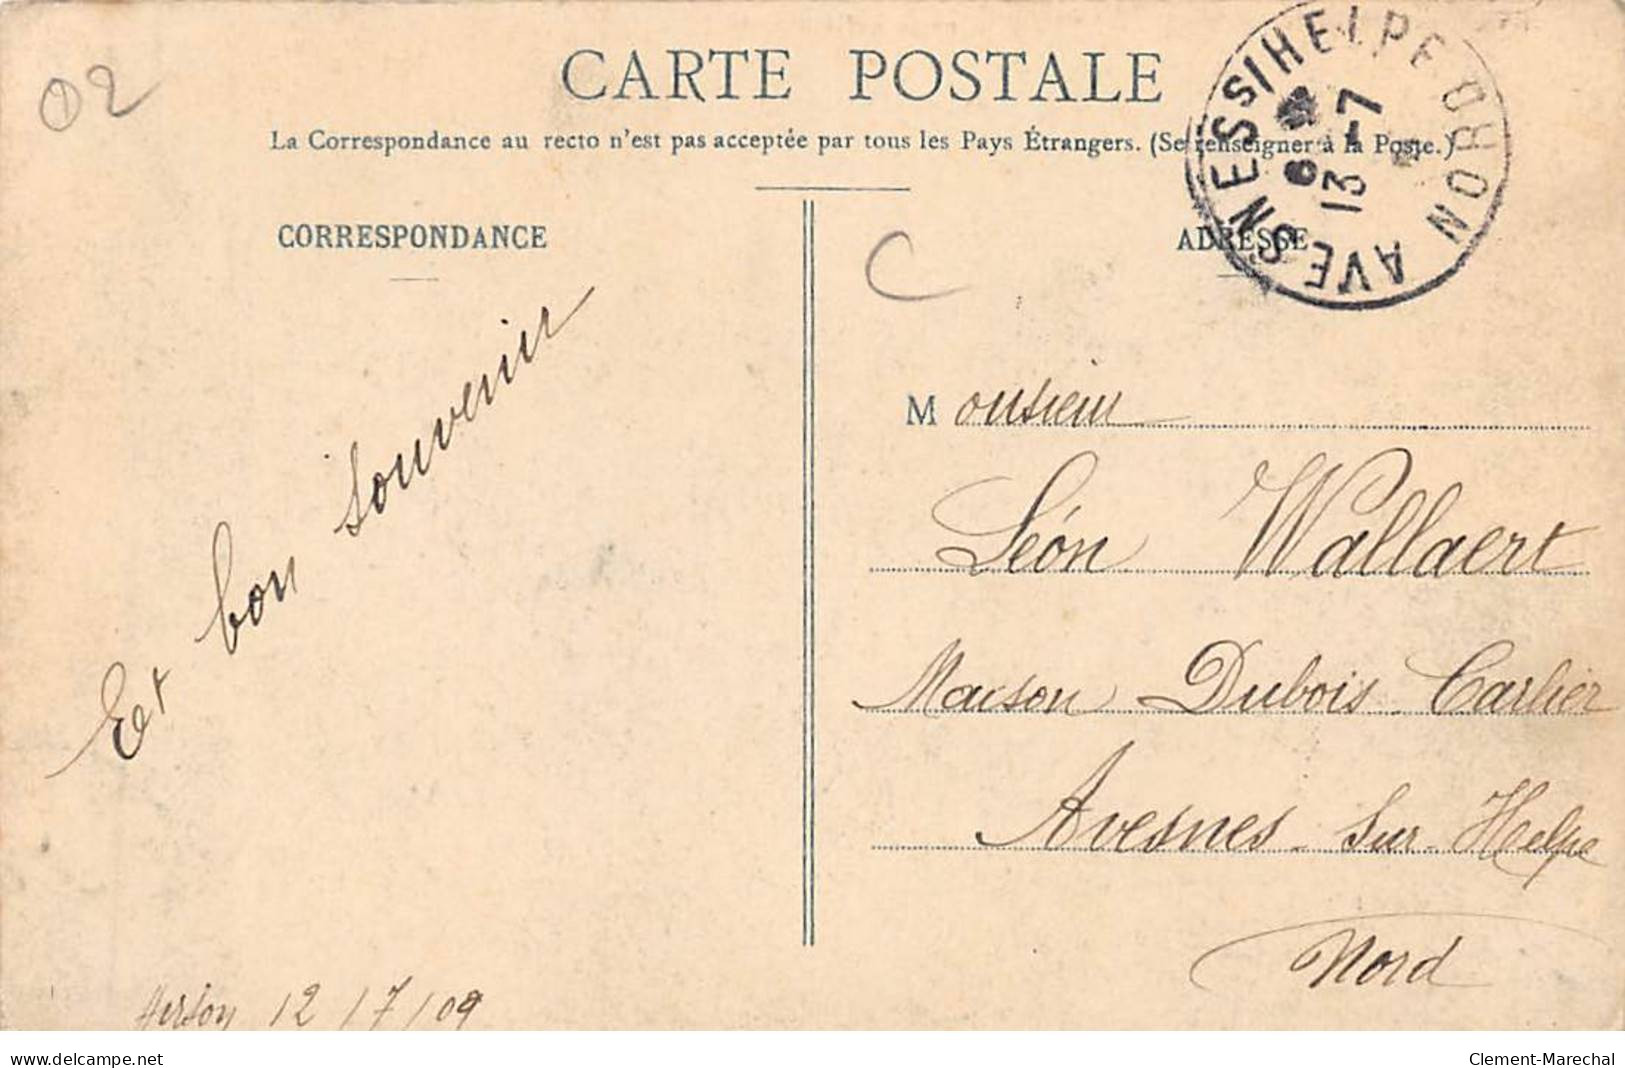 02
CARTE POSTALE
La Correspondance au recto n'est pas acceptée par tous les Pays Étrangers. (Se renseigner à la Poste.)
AVESNES S/HELPE NORD
13-7
CORRESPONDANCE
ADRESSE
C
Et bon souvenir
Monsieur
Léon Wallaert
Maison Dubois Carlier
Avesnes-sur-Helpe
Nord
Hirson 12/7/09
www.delcampe.net
Clement-Marechal